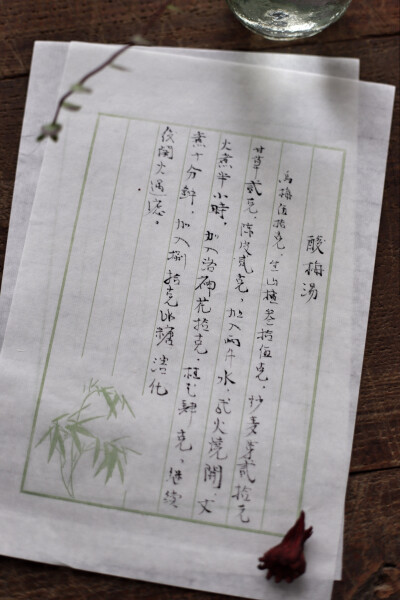 酸梅湯
烏梅伍拾克，生山楂叁拾伍克，炒麦芽贰拾克
甘草贰克，陈皮贰克，加入两斤水，武火燒開，文
火煮半小時，加入洛神花拾克，桂花肆克，继续
煮十分鐘，加入捌拾克冰糖溶化
後関火過濾。